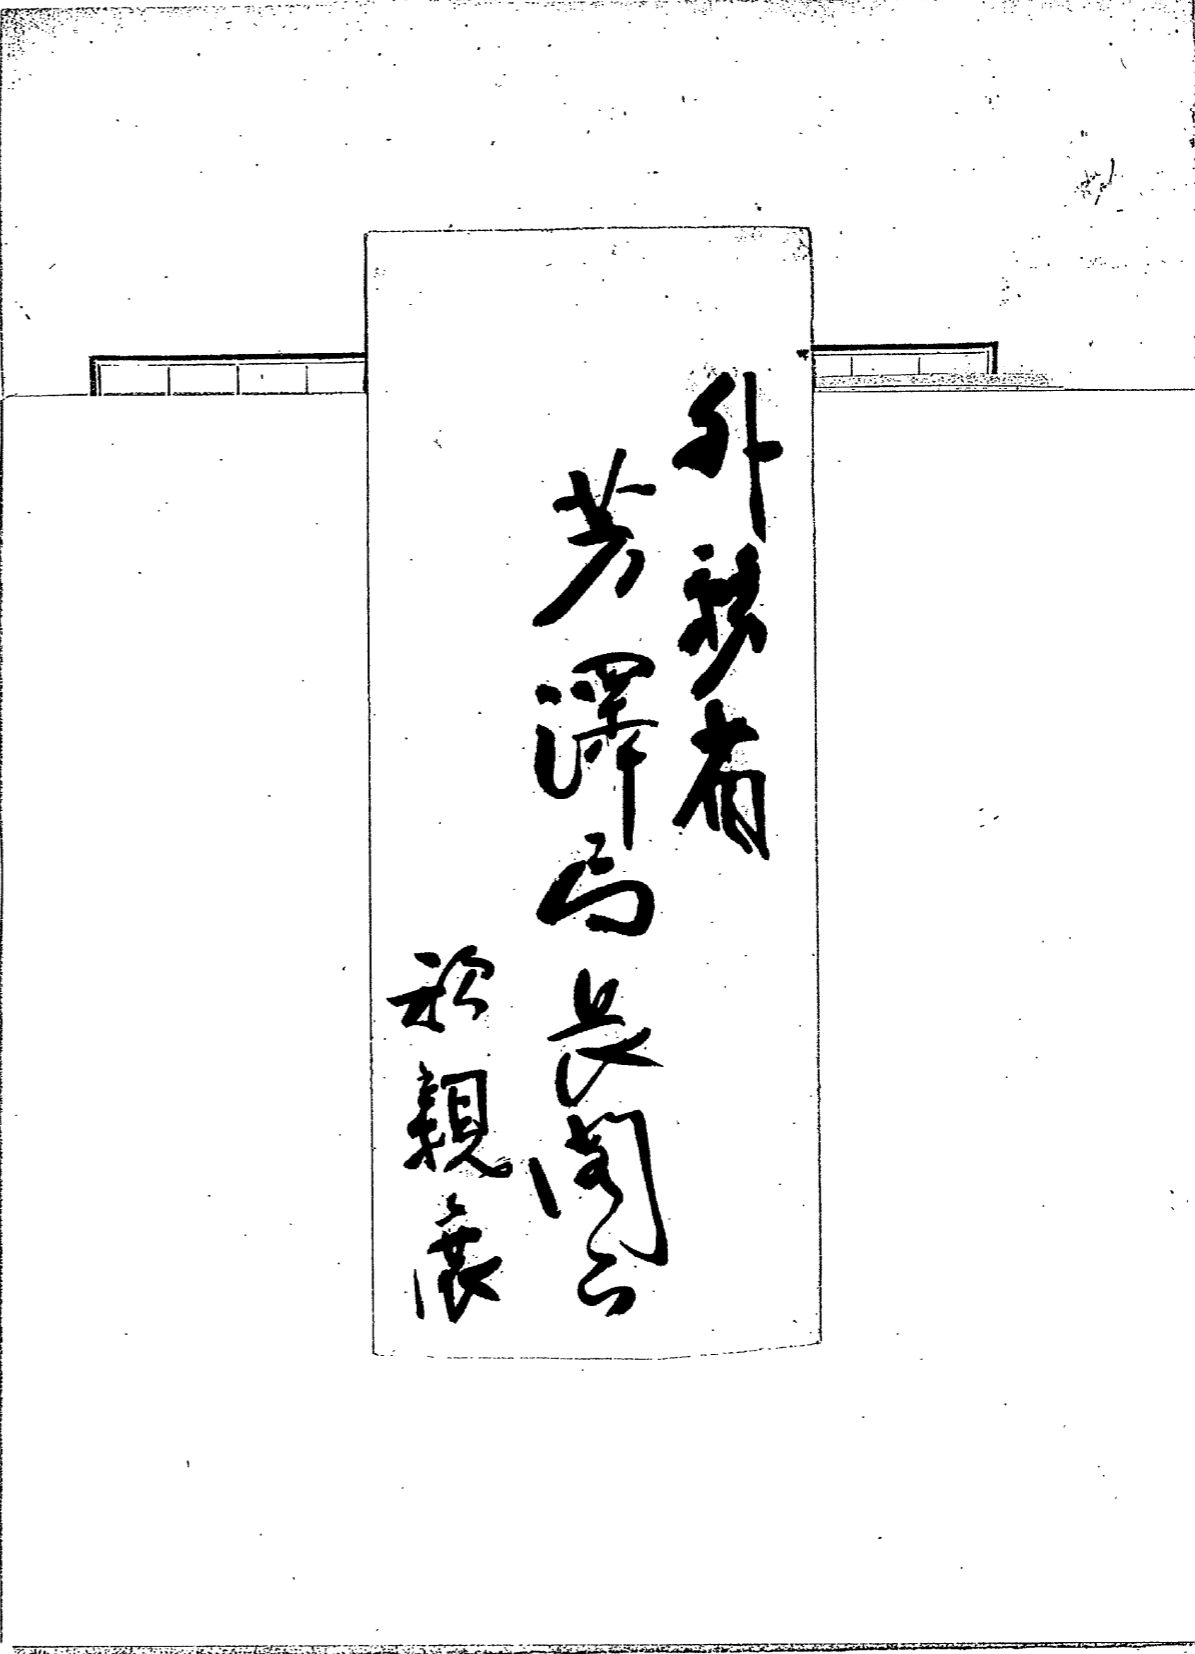 外務省
芳澤局長閣下
祕親展